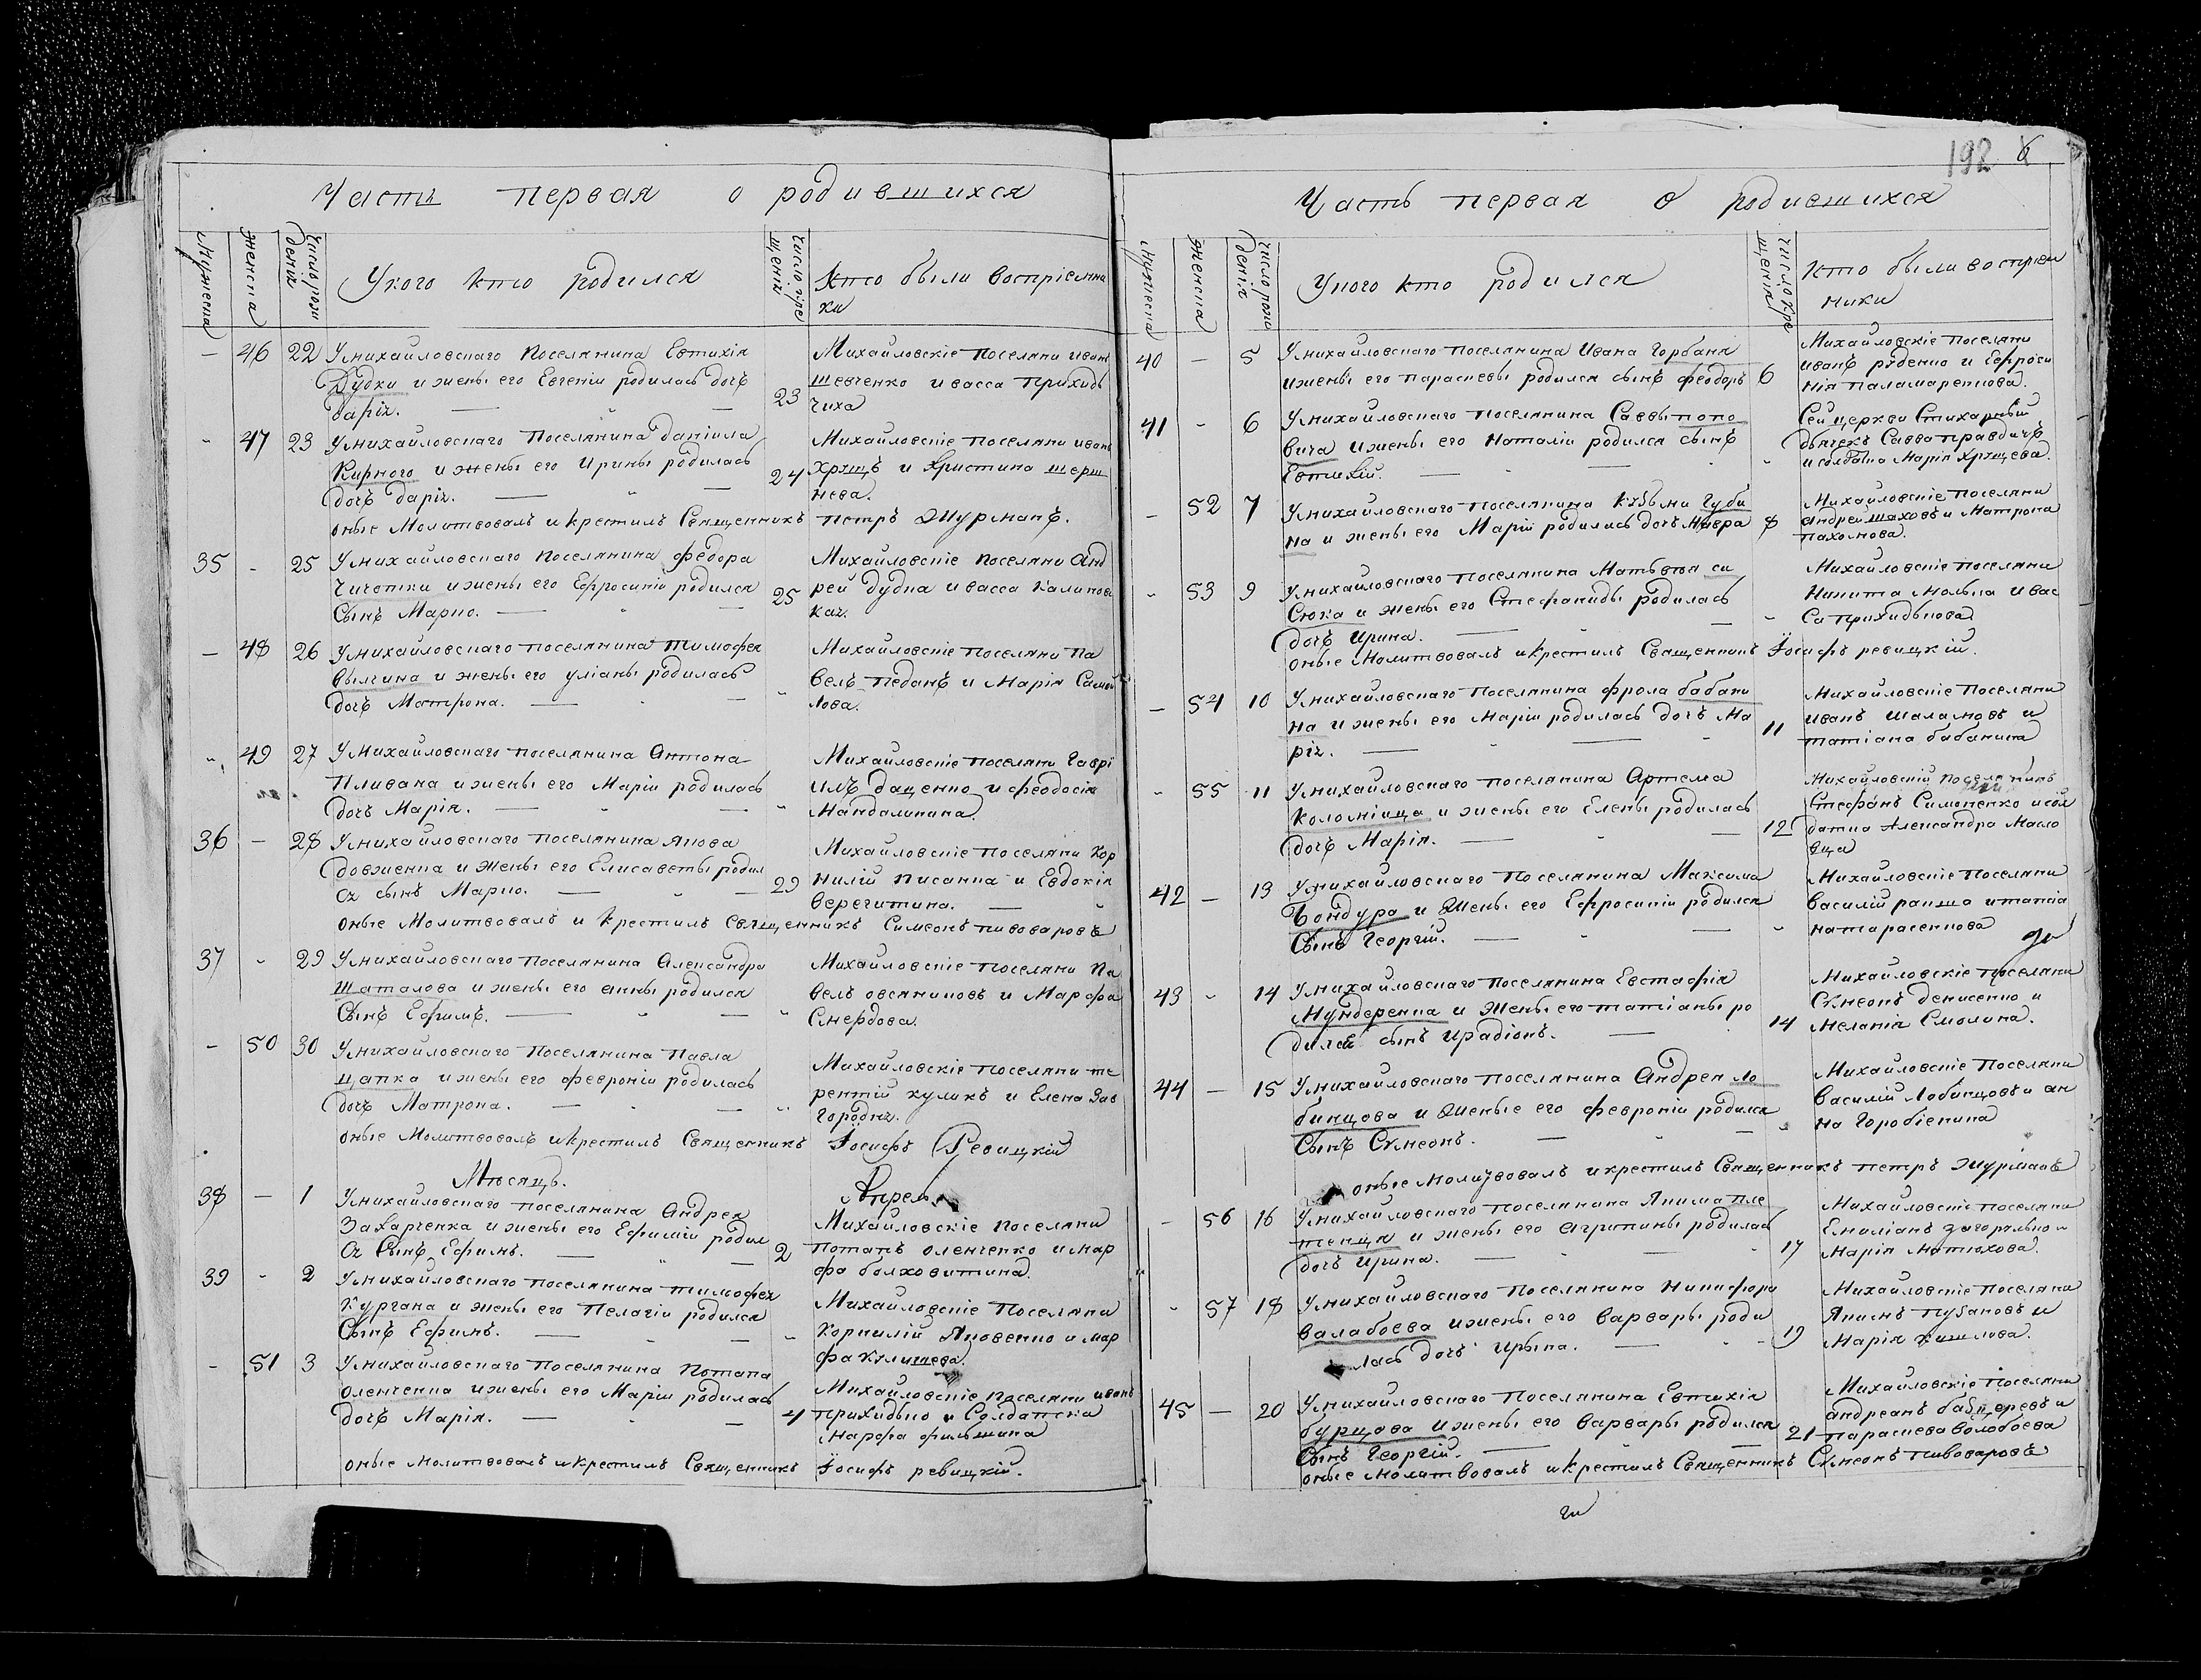 Часть первая о родившихся
Мужеска
Женска
Число рожденія
У кого кто родился
Число крещенія
Кто были воспріемники
- 46 22 У михайловскаго поселянина Евтихія
Дудки и жены его Евгеніи родилась дочь
Дарія.
23
Михайловскіе поселяни иванъ
шевченко и васса приходь
чиха
- 47 23 У михайловскаго поселянина даніила
Кирного и жены его Ирины родилась
дочь дарія.
24
Михайловскіе поселяни иванъ
хрущъ и христина шерш
нева.
оные Молитвовалъ и крестилъ Священникъ петръ Журманъ.
35 - 25 У михайловскаго поселянина федора
Чичотки и жены его Ефросиніи родился
Сынъ Марко.
25
Михайловскіе поселяни Анд
рей дудка и васса калинов
кая.
- 48 26 У михайловскаго поселянина тимофея
и жены его уліаны родилась
дочь Матрона.
Михайловскіе поселяни Па
велъ педанъ и Марія Самой
лова.
- 49 27 У Михайловскаго поселянина Антона
Пливана и жены его Маріи родилась
дочь Марія.
Михайловскіе поселяни Гаврі
илъ даценко и феодосія
Мандалинина
36 - 28 У михайловскаго поселянина якова
довженка и жены его Елисаветы родил
ся сынъ Марко.
29
Михайловскіе поселяни Кор
нилій писанка и Евдокія
веречитина.
оные Молитвовалъ и крестилъ священникъ Симеонъ пивоваровъ
37 - 29 У михайловскаго поселянина Александра
Шаталова и жены его анны родился
Сынъ Ефимъ.
Михайловскіе поселяни Па
велъ овсяниковъ и Марфа
Смердова.
- 50 30 У михайловскаго поселянина Павла
цапка и жены его февроніи родилась
дочь Матрона.
Михайловскіе поселяни те
рентій куликъ и Елена Зав
городня.
оные Молитвовалъ и крестилъ Священникъ Іосифъ Ревицкій
Мѣсяцъ. Апрель
38 - 1 У михайловскаго поселянина Андрея
Захарченка и жены его Ефиміи родил
ся Сынъ Ефимъ.
2
Михайловскіе поселяни
потапъ оленченко и мар
фа болховитина.
39 - 2 У михайловскаго поселянина тимофея
Кургана и жены его Пелагіи родился
Сынъ Ефимъ.
Михайловскіе поселяни
Корнилій Яковенко и мар
фа кулишева.
- 51 3 У михайловскаго поселянина Потапа
оленченка и жены его Маріи родилась
дочь Марія.
4
Михайловскіе поселяни иванъ
приходько и Солдатска
Марфа филькина
оные молитвовалъ и крестилъ Священникъ Іосифъ ревицкій.
192 6
Часть первая о родившихся
Мужеска
Женска
Число рожденія
У кого кто родился
Число крещенія
Кто были воспріем
ники
40 - 5 У михайловскаго поселянина Ивана Горбаня
и жены его параскевы родился сынъ феодоръ
6
Михайловскіе поселяни
иванъ руденко и Ефроси
нія паламаренкова.
41 - 6 У михайловскаго поселянина Саввы попо
вича и жены его наталіи родился сынъ
Евтихій.
Сей церкви Стихарный
дьячекъ Савва правдичъ
и солдатка Марія хрущева.
- 52 7 У михайловскаго поселянина Кузьмы Губи
на и жены его Маріи родилась дочь Мавра
8
Михайловскіе поселяни
андрей шаховъ и Матрона
пахомова.
- 53 9 У михайловскаго поселянина Матвѣя си
Сюка и жены его Стефаниды родилась
дочь Ирина.
Михайловскіе поселяни
Никита мольна и вас
са приходькова
оные Молитвовалъ и крестилъ Священникъ Іосифъ ревицкій.
- 54 10 У михайловскаго поселянина фрола бабани
на и жены его Маріи родилась дочь Ма
рія.
11
Михайловскіе поселяни
иванъ шаламовъ и
татіана бабанина
- 55 11 У михайловскаго поселянина Артема
Коломійца и жены его Елены родилась
дочь Марія.
12
Михайловскій поселянинъ
Стефанъ Симоненко и сол
датка Александра Масло
вца
42 - 13 У михайловскаго поселянина Максима
Бондура и Жены его Ефросиніи родился
Сынъ Георгій.
Михайловскіе поселяни
василій ракша и татіа
на тарасенкова
43 - 14 У михайловскаго поселянина Евстафія
Мундеренка и Жены его татіаны ро
дился сынъ Иродіонъ.
14
Михайловскіе поселяни
Симеонъ денисенко и
меланія Смолина.
44 - 15 У михайловскаго поселянина Андрея ло
бинцова и Жены его февроніи родился
Сынъ Симеонъ.
Михайловскіе поселяни
василій Лобинцовъ и ан
на Горобієнина
оные молитвовалъ и крестилъ Священникъ петръ Журманъ
- 56 16 У михайловскаго поселянина Якима пле
тенця и жены его агрипины родилась
дочь Ирина.
17
Михайловскіе поселяни
Емеліанъ загорулько и
Марія матюхова.
- 57 18 У михайловскаго поселянина Никифора
валабоева и жены его варвары роди
лась дочь Ирина.
19
Михайловскіе поселяни
Якимъ пузановъ и
Марія
45 - 20 У михайловскаго поселянина Евтихія
бурцова и жены его варвары родился
Сынъ Георгій.
21
Михайловскіе поселяни
андреанъ и
параскева волобоева
оные молитвовалъ и крестилъ Священникъ Симеонъ пивоваровъ